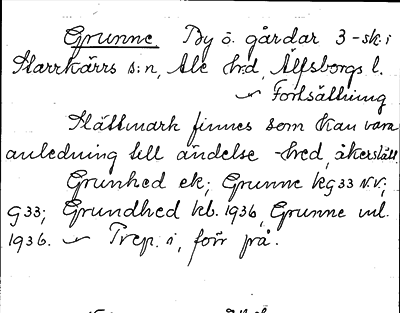 Grunne By ö. gårdar 3-sk: i
Starrkärrs s:n, Ale hrd, Älfsborgs l.
Fortsättning
Slättmark finnes som kan vara
anledning till ändelse -hed, åkerslätt.
Grunhed ek; Grunne kg 33 NV;
g 33; Grundhed kb. 1936, Grunne ml.
1936. Prep. i, förr på.